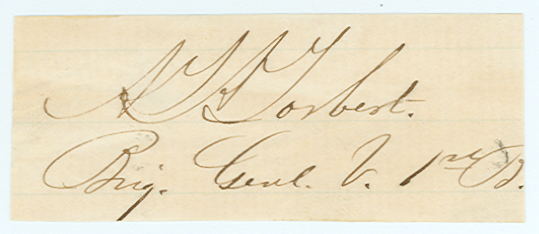 A T A Torbert.
Brig. Genl. V.